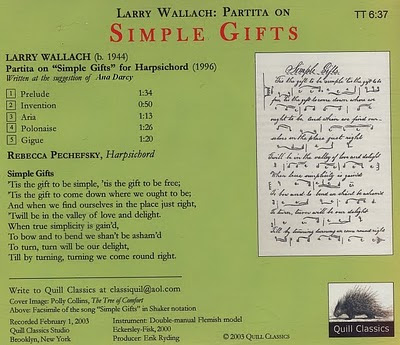 LARRY WALLACH: PARTITA ON
SIMPLE GIFTS
TT 6:37
LARRY WALLACH (b. 1944)
Partita on “Simple Gifts” for Harpsichord (1996)
Written at the suggestion of Ana Darcy
1 Prelude 1:34
2 Invention 0:50
3 Aria 1:13
4 Polonaise 1:26
5 Gigue 1:20
REBECCA PECHEFSKY, Harpsichord
Simple Gifts
'Tis the gift to be simple, 'tis the gift to be free;
'Tis the gift to come down where we ought to be;
And when we find ourselves in the place just right,
'Twill be in the valley of love and delight.
When true simplicity is gain'd,
To bow and to bend we shan't be asham'd
To turn, turn will be our delight,
Till by turning, turning we come round right.
Simple Gifts.
Tis the gift to be simple tis the gift to be
tis the gift to come down where we
ought to be and when we find our-
selves in the place just right
Twill be in the valley of love and delight
When true simplicity is gained
To bow and to bend we shan't be ashamed
To turn, turn will be our delight
Till by turning, turning we come round right
Write to Quill Classics at classiquil@aol.com
Cover Image: Polly Collins, The Tree of Comfort
Above: Facsimile of the song “Simple Gifts” in Shaker notation
Recorded February 1, 2003
Quill Classics Studio
Brooklyn, New York
Instrument: Double-manual Flemish model
Eckersley-Fisk, 2000
Producer: Erik Ryding
© 2003 QUILL CLASSICS
Quill Classics